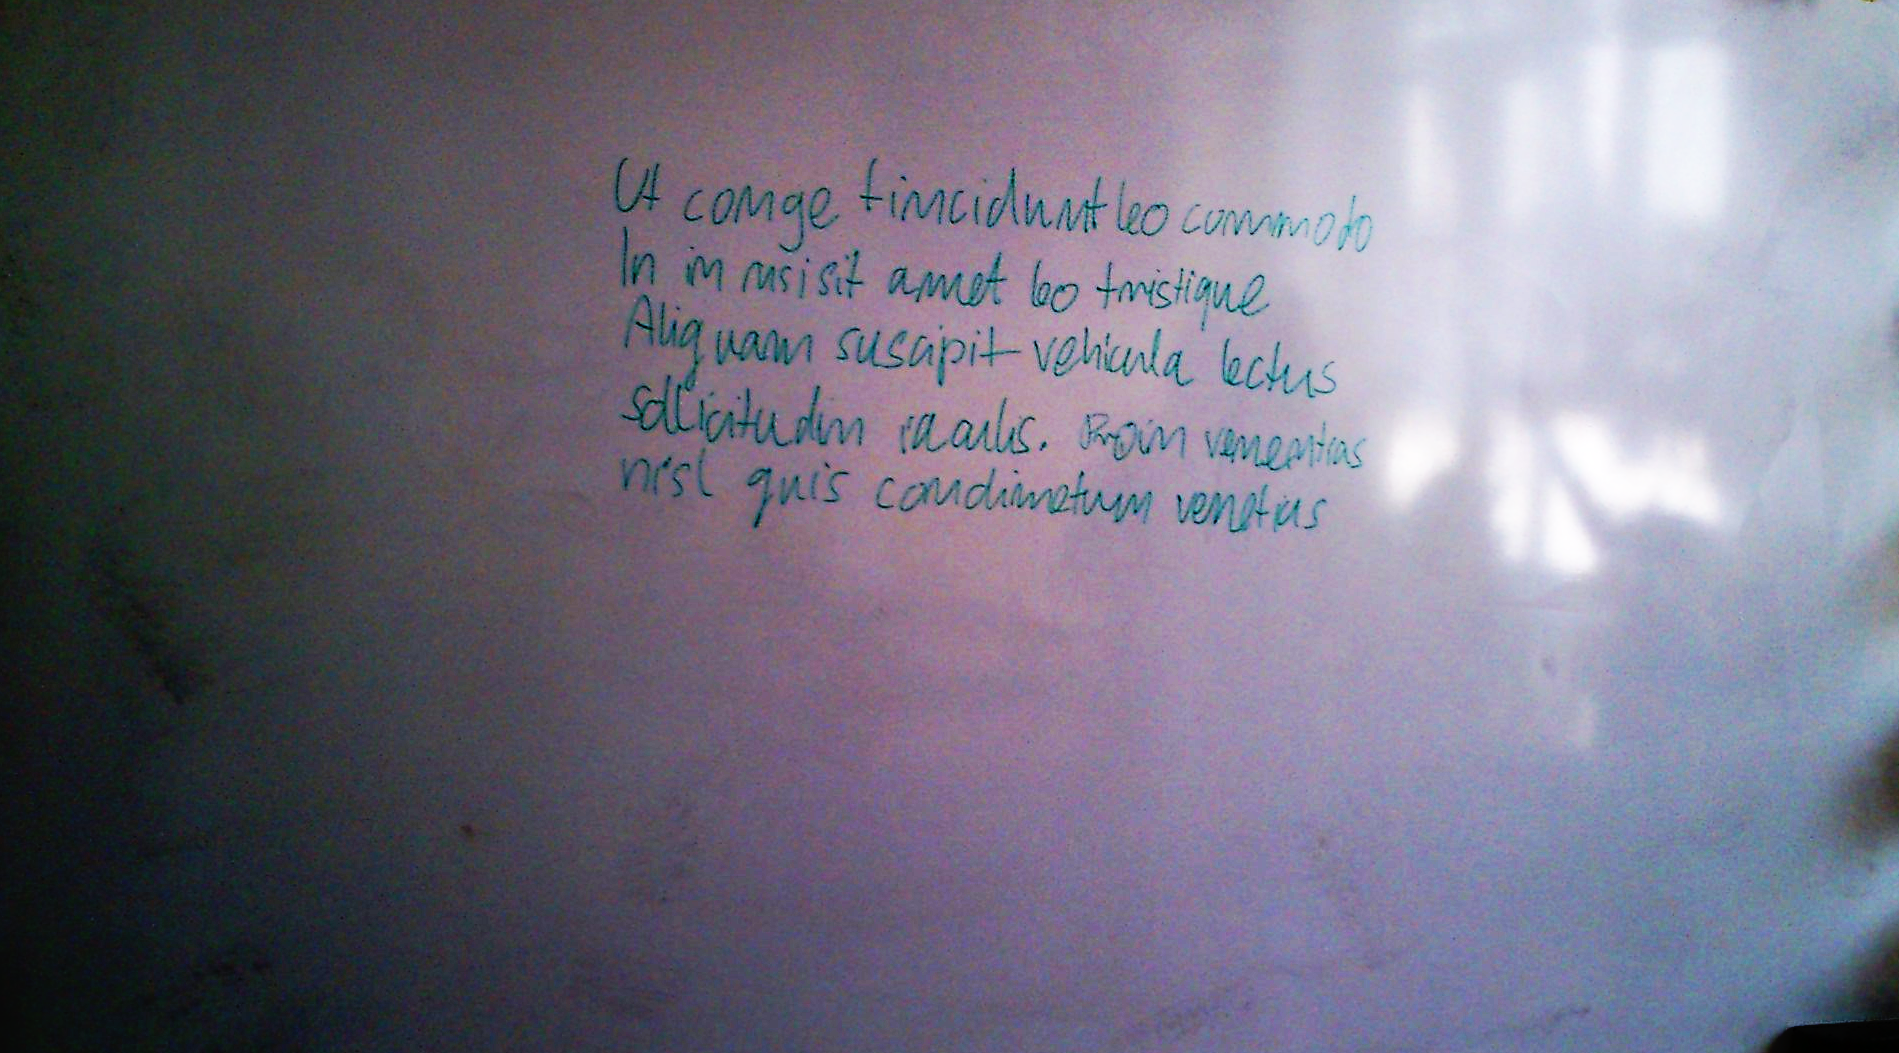 Ut conge tincidunt leo commodo
In in nisi sit amet leo tristique
Aliquam suscipit vehicula lectus
sollicitudin iaculis. Proin venenatias
nisl quis condimetum venetias